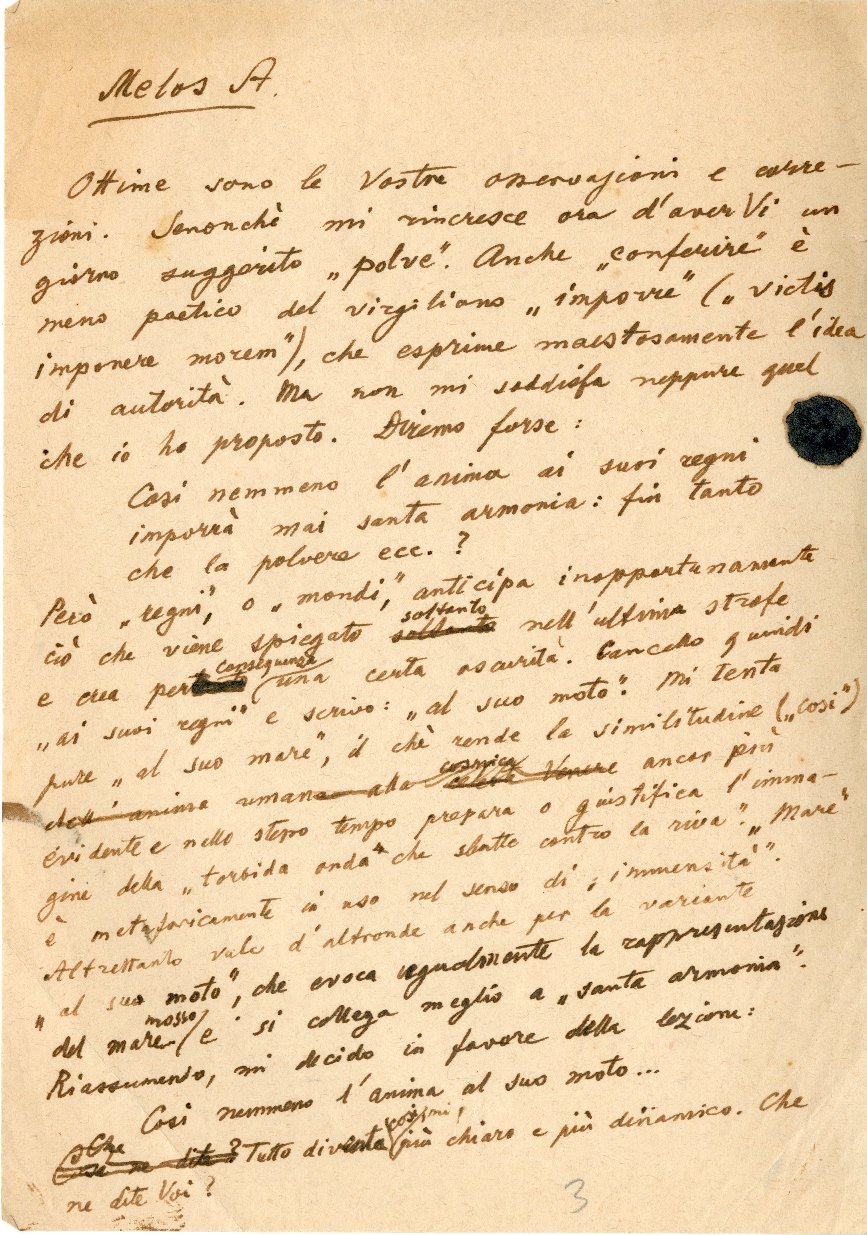 Melos A.
Ottime sono le Vostre osservazioni e corre-
zioni. Senonchè mi rincresce ora d'averVi un
giorno suggerito „polve”. Anche „conferire” è
meno poetico del virgiliano „imporre” („victis
imponere morem”), che esprime maestosamente l'idea
di autorità. Ma non mi soddisfa neppure quel
che io ho proposto. Diremo forse:
Così nemmeno l'anima ai suoi regni
imporrà mai santa armonia: fin tanto
che la polvere ecc. ?
Però „regni”, o „mondi”, anticipa inopportunamente
ciò che viene spiegato soltanto nell'ultima strofe
e crea per conseguenza una certa oscurità. Cancello quindi
„ai suoi regni” e scrivo: „al suo moto”. Mi tenta
pure „al suo mare”, il chè rende la similitudine („così”)
dell'anima umana alla cosmica Venere ancor più
evidente e nello stesso tempo prepara o giustifica l'imma-
gine della „torbida onda” che sbatte contro la riva”. „Mare”
è metaforicamente in uso nel senso di „immensità”.
Altrettanto vale d'altronde anche per la variante
„al suo moto”, che evoca ugualmente la rappresentazione
del mare mosso e si collega meglio a „santa armonia”.
Riassumento, mi decido in favore della lezione:
Così nemmeno l'anima al suo moto...
Che
Così ne dite? Tutto diventa così, mi, più chiaro e più dinamico. Che
ne dite Voi ?
3